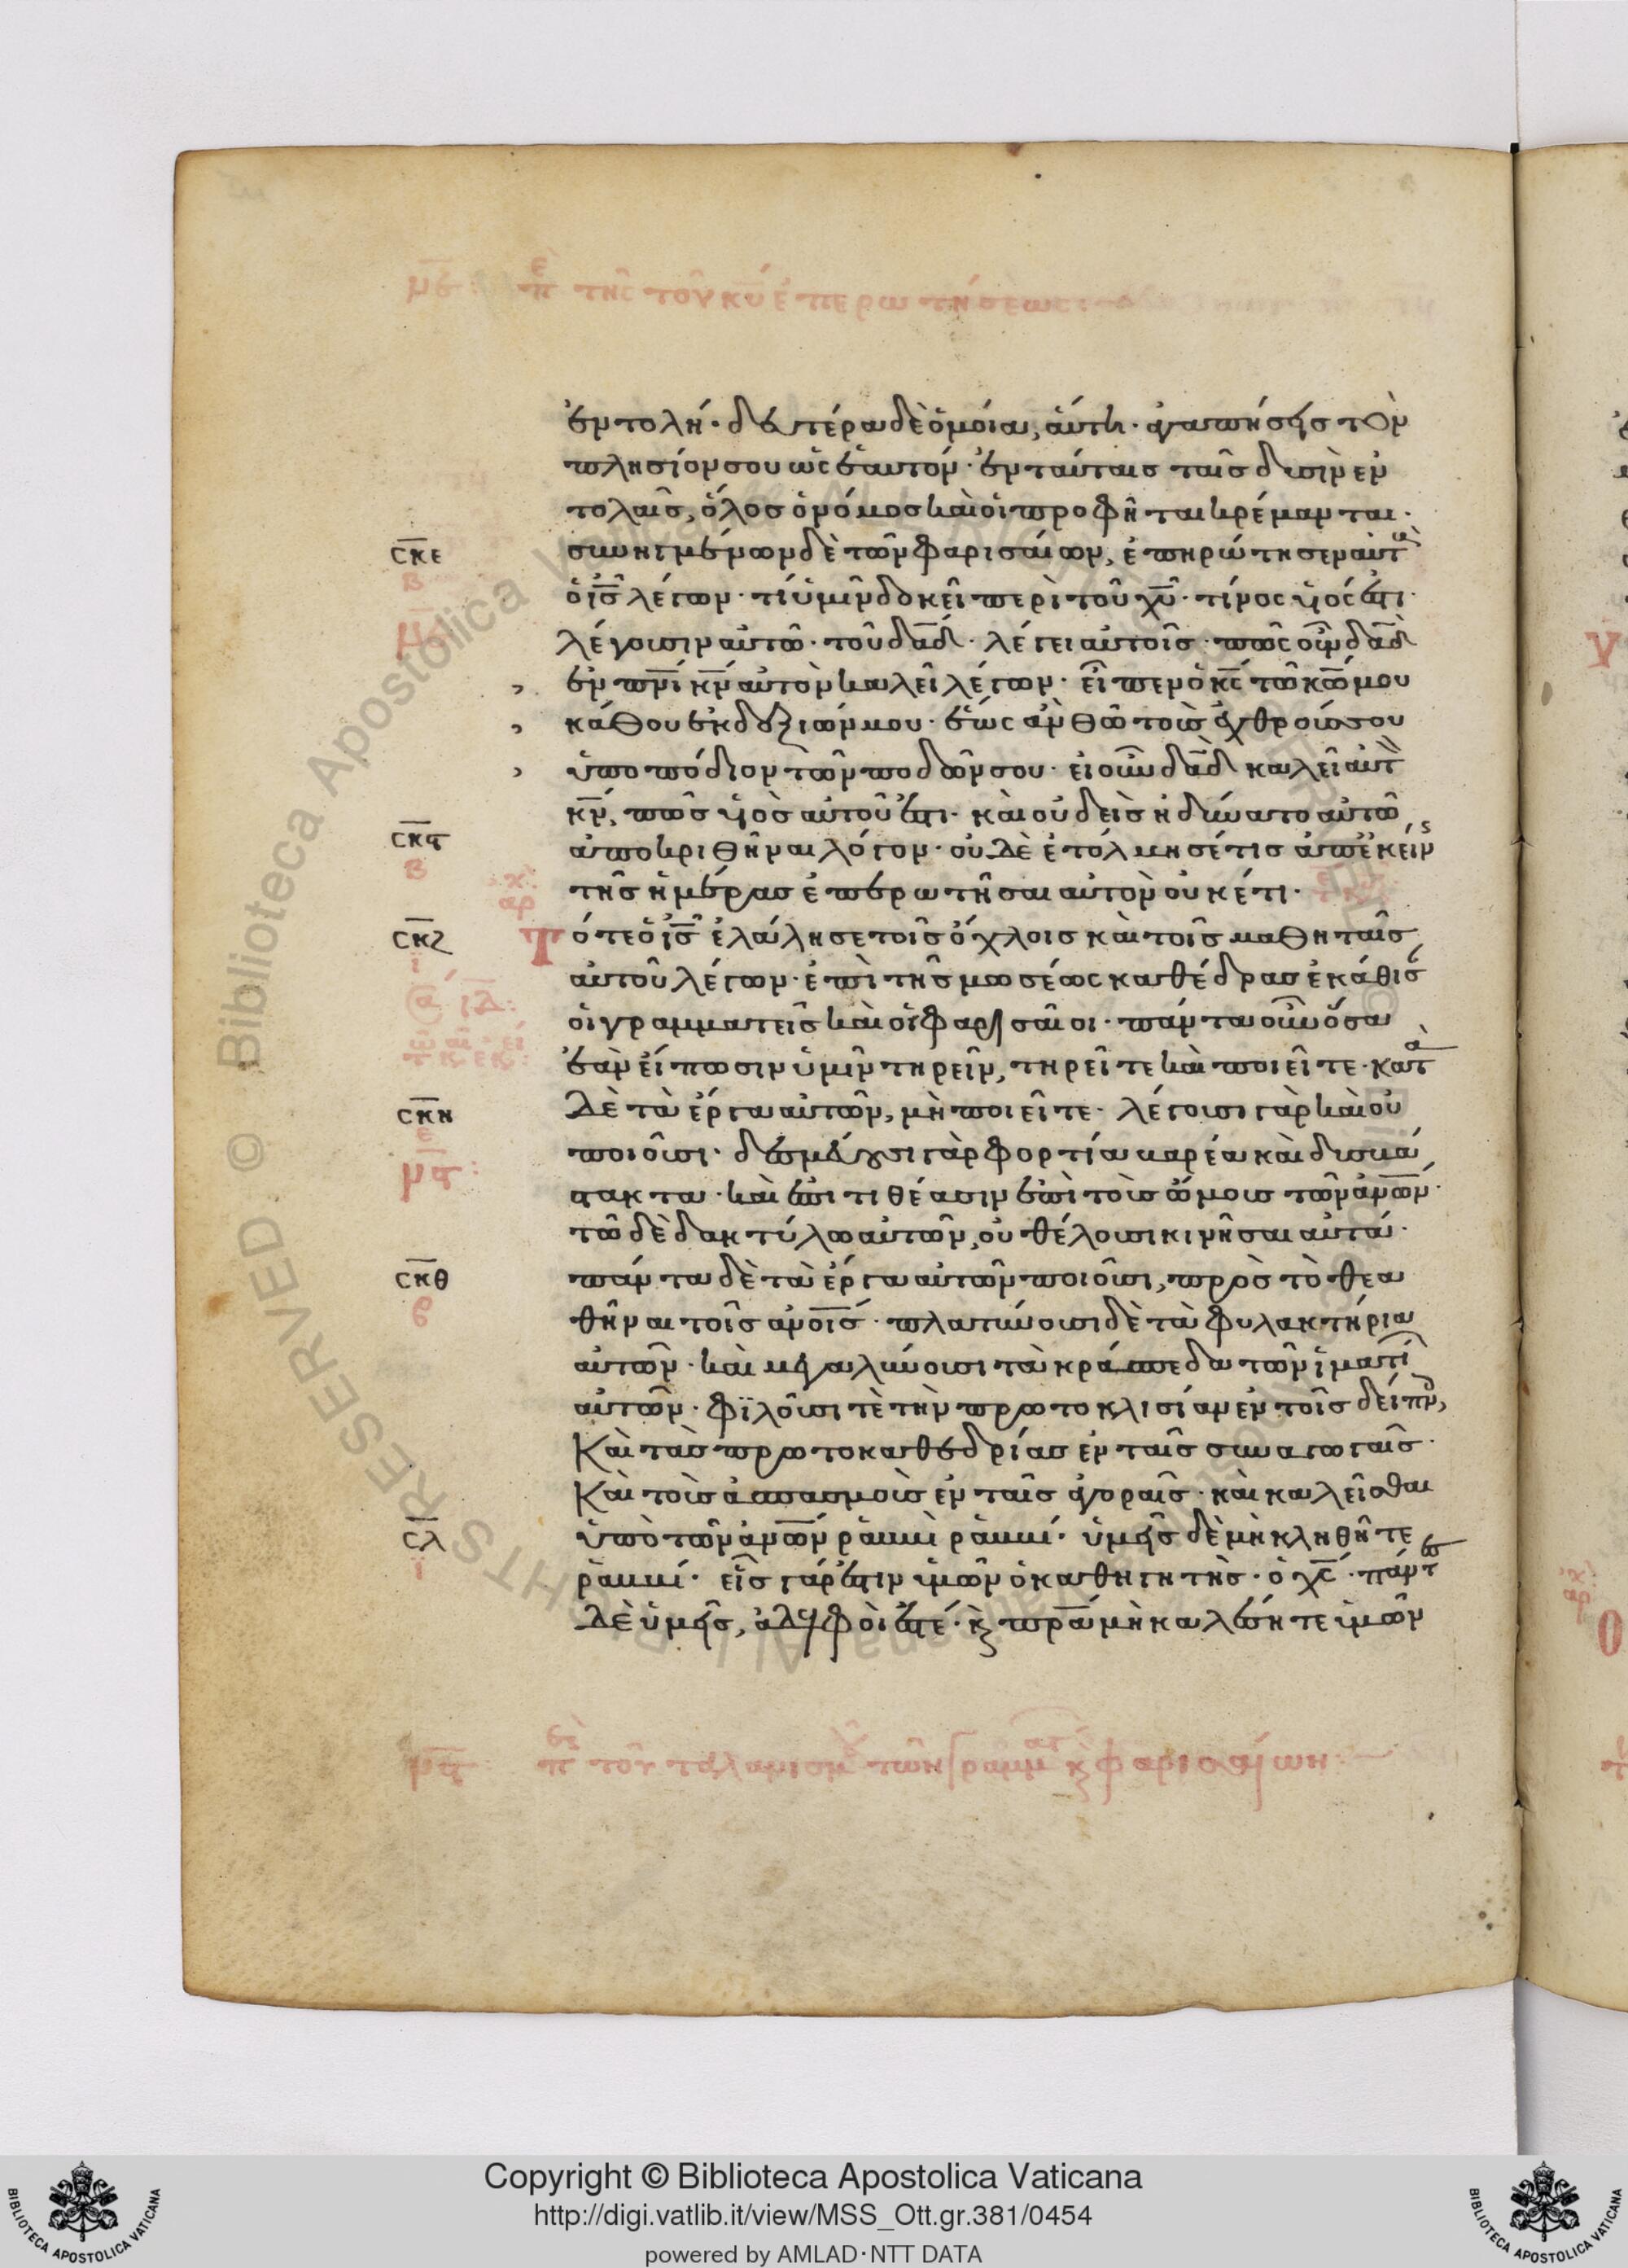 με περὶ τῆς τοῦ κυ ἐπερωτήσεως:
ἐντολή· δευτέρα δὲ ὁμοία, αὕτη· ἀγαπήσεις τὸν
πλησίον σου ὡς ἑαυτόν· ἐν ταύταις ταῖς δυσὶν ἐν
τολαῖς, ὅλος ὁ νόμος καὶ οἱ προφῆται κρέμανται·
σκε συνηγμένων δὲ τῶν φαρισαίων, ἐπηρώτησεν αὐτ
ὁ ις λέγων· τί ὑμῖν δοκεῖ περὶ τοῦ χυ· τίνος υἱός ἐστι·
λέγουσιν αὐτῶ· τοῦ δαδ· λέγει αὐτοῖς· πῶς οὖν δαδ
ἐν πνι κν αὐτὸν καλεῖ λέγων· εἶπεν ὁ κς τῶ κω μου
κάθου ἐκ δεξιῶν μου· ἕως ἂν θῶ τοὺς ἐχθρούς σου
ὑποπόδιον τῶν ποδῶν σου· εἰ οὖν δαδ καλεῖ αὐτ
κν, πῶς υἱὸς αὐτοῦ ἐστι· καὶ οὐδεὶς ἠδύνατο αὐτῶ
σκϛ ἀποκριθῆναι λόγον· οὐδὲ ἐτόλμησέ τις ἀπ ἐκείν
τῆς ἡμέρας ἐπερωτῆσαι αὐτὸν οὐκέτι·
σκζ Τότε ὁ ις ἐλάλησε τοῖς ὄχλοις καὶ τοῖς μαθηταῖς
αὐτοῦ λέγων· ἐπὶ τῆς μωσέως καθέδρας ἐκάθισ
οἱ γραμματεῖς καὶ οἱ φαρισαῖοι· πάντα οὖν ὅσα
ἐὰν εἴπωσιν ὑμῖν τηρεῖν, τηρεῖτε καὶ ποιεῖτε· κατ
σκη δὲ τὰ ἔργα αὐτῶν, μὴ ποιεῖτε· λέγουσι γὰρ καὶ οὐ
μϛ ποιοῦσι· δεσμεύουσι γὰρ φορτία βαρέα καὶ δυσβά
στακτα· καὶ ἐπιτιθέασιν ἐπὶ τοὺς ὤμους τῶν ανων·
τῶ δὲ δακτύλω αὐτῶν, οὐ θέλουσι κινῆσαι αὐτά·
σκθ πάντα δὲ τὰ ἔργα αὐτῶν ποιοῦσι, πρὸς τὸ θεα
θῆναι τοῖς ανοις· πλατύνουσι δὲ τὰ φυλακτήρια
αὐτῶν· καὶ μεγαλύνουσι τὰ κράσπεδα τῶν ἱματί
αὐτῶν· φϊλοῦσι τὲ τὴν πρωτοκλισίαν ἐν τοῖς δείπν,
Καὶ τὰς πρωτοκαθεδρίας ἐν ταῖς συναγωγαῖς·
Καὶ τοὺς ἀσπασμοὺς ἐν ταῖς ἀγοραῖς· καὶ καλεῖσθαι
σλ ὑπὸ τῶν ανων ῥαββὶ ῥαββί· ὑμεῖς δὲ μὴ κληθῆτε
ῥαββί· εἷς γάρ ἐστιν ὑμῶν ὁ καθηγητὴς· ὁ χς· πάντ
δὲ ὑμεῖς, ἀδελφοὶ ἐστέ· κ πρα μὴ καλέσητε ὑμῶν
μϛ περὶ τοῦ ταλανισμοῦ τῶν γραμματ κ φαρισαίων
Copyright © Biblioteca Apostolica Vaticana
http://digi.vatlib.it/view/MSS_Ott.gr.381/0454
powered by AMLAD·NTT DATA